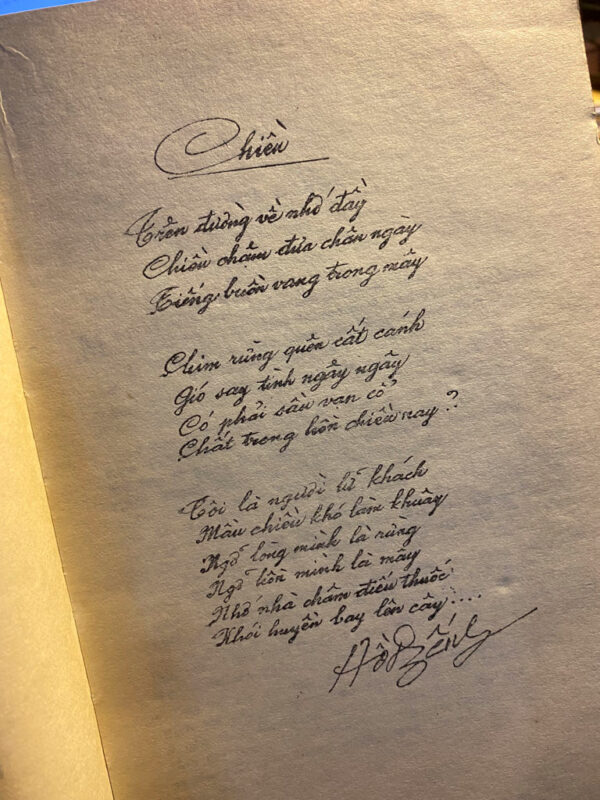 Chiều
Trên đường về nhớ đầy
Chiều chậm đưa chân ngày
Tiếng buồn vang trong mây
Chim rừng quên cất cánh
Gió say tình ngây ngây
Có phải sầu vạn cổ
Chất trong hồn chiều nay ?
Tôi là người lữ khách
Mầu chiều khó làm khuây
Ngỡ lòng mình là rừng
Ngỡ hồn mình là mây
Nhớ nhà châm điếu thuốc
Khói huyền bay lên cây....
Hồ Dzếnh